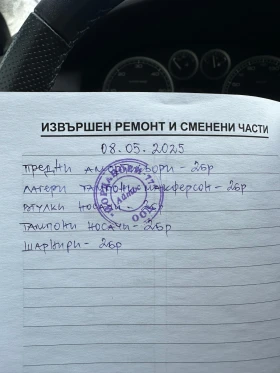 ИЗВЪРШЕН РЕМОНТ И СМЕНЕНИ ЧАСТИ
08.05.2025
ПРЕДНИ АМОРТИСЬОРИ - 2БР
ЛАГЕРИ ТАМПОНИ МАКФЕРСОН - 2БР
ВТУЛКИ НОСАЧИ
ТАМПОНИ НОСАЧИ - 2БР
ШАРНИРИ - 2БР
ЕООД